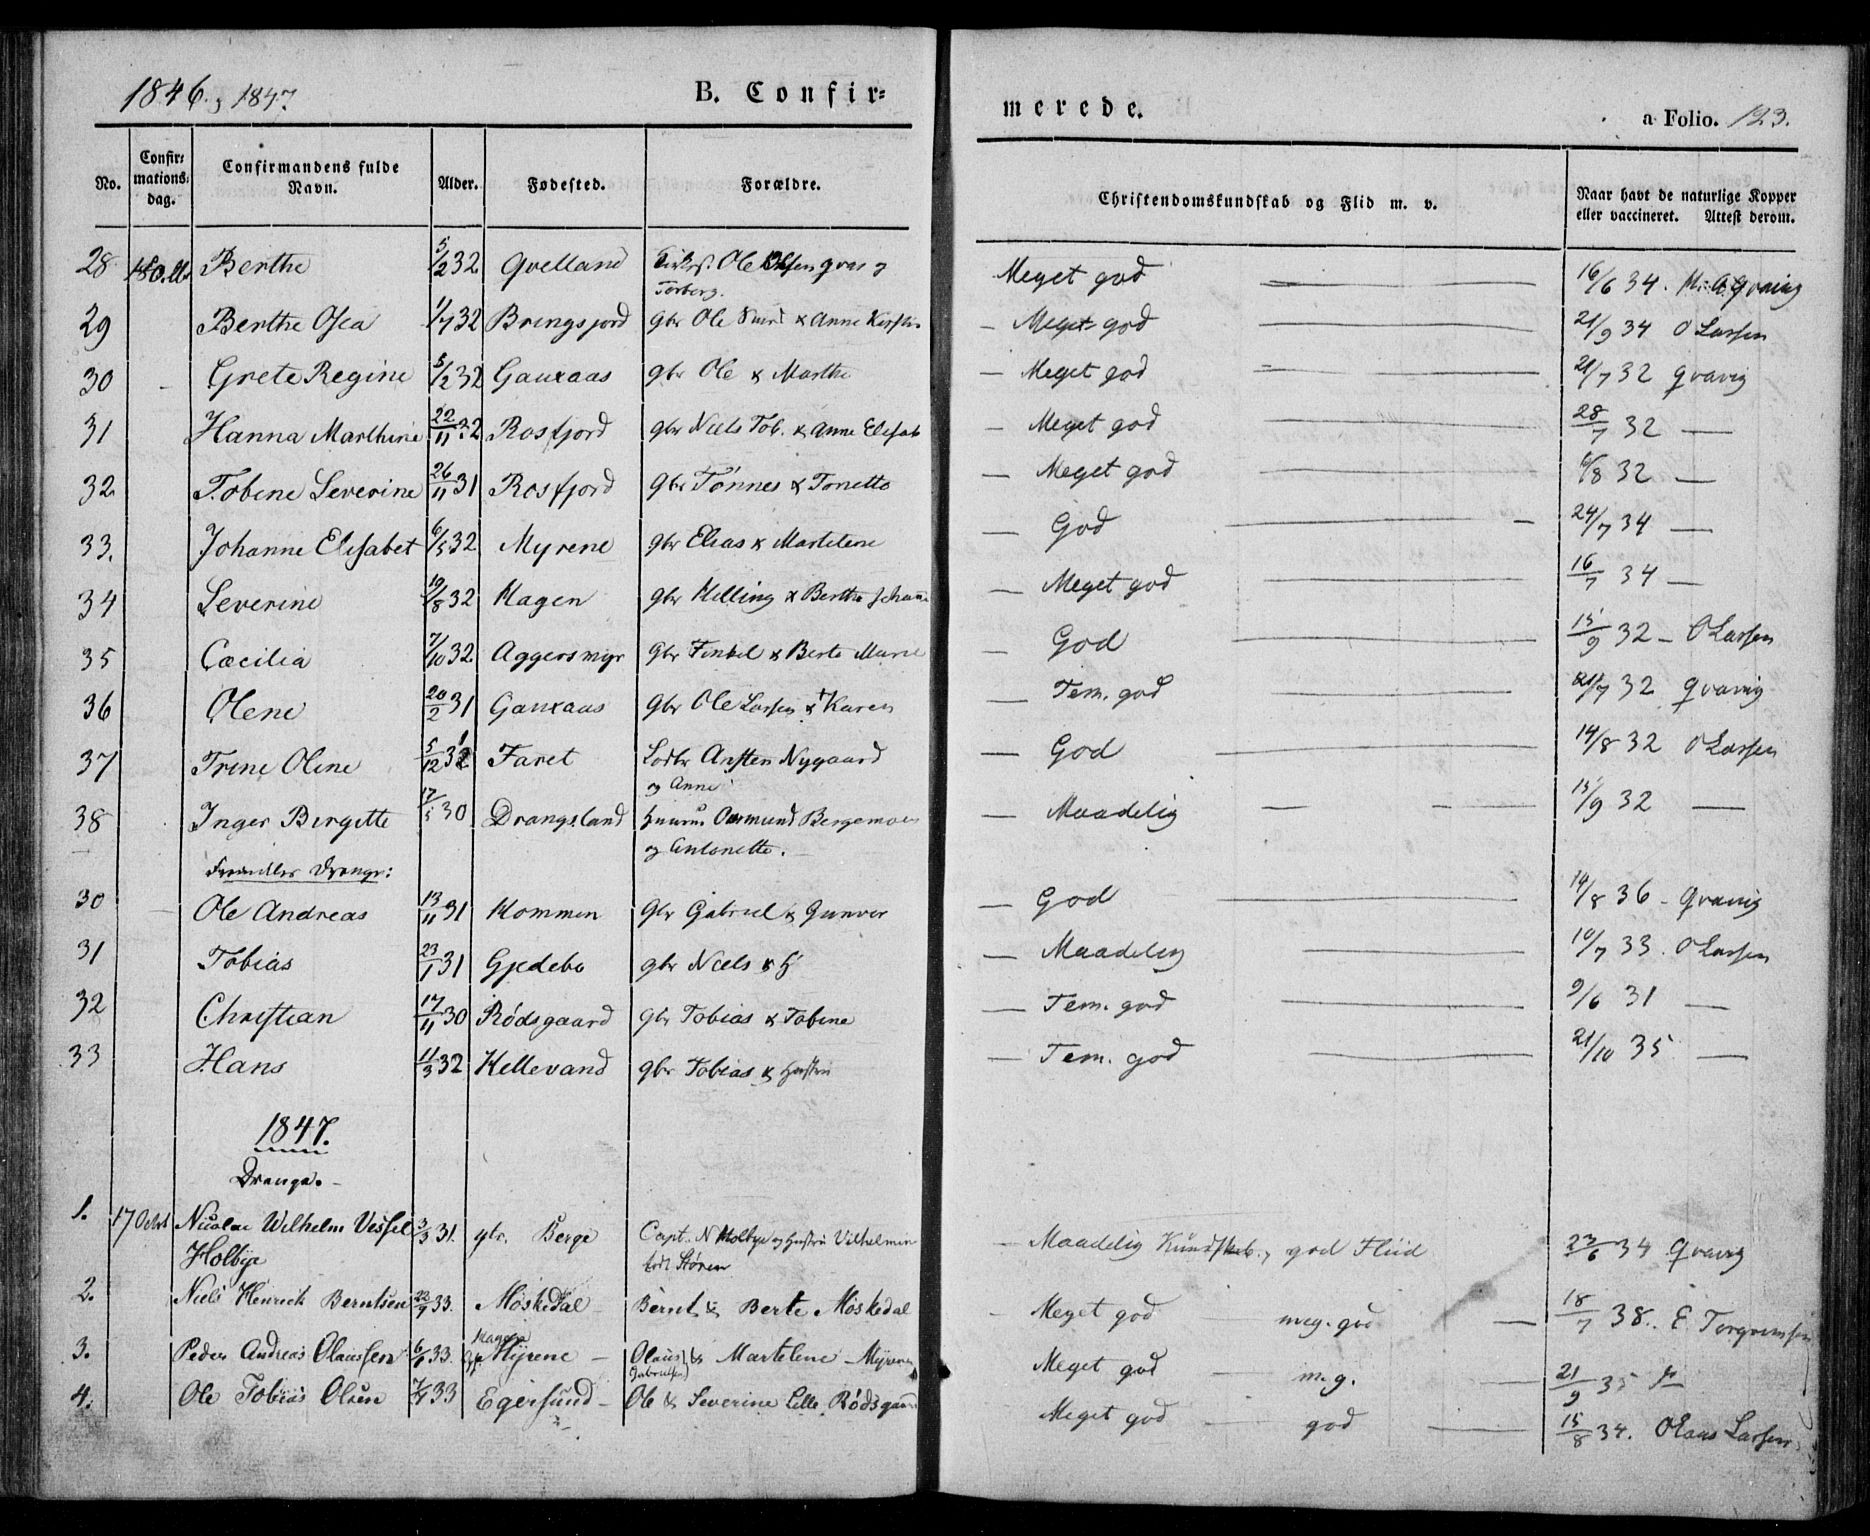 1846 og 1847
B. Confirmerede.
a Folio. 123.
No. Confirmationsdag. Confirmandens fulde Navn. Alder. Fødested. Forældre. Christendomskundskab og Flid m. v. Naar havt de naturlige Kopper eller vaccineret. Attest derom.
28 Berthe 5/2 32 Qvelland Ole Olsen qvas og Torborg. Meget god 16/6 34. Qvavig
29 Berthe Osea 1/7 32 Bringsjord gbr Ole & Anne Kirstin — Meget god 21/9 34 O Larsen
30 Grete Regine 5/2 32 Gauxaas gbr Ole & Marthe — Meget god 21/7 32 Qvavig
31 Hanna Marthine 22/11 32 Rosfjord gbr Niels Tob. & Anne Elisab — Meget god 28/7 32 —
32 Tobine Severine 26/11 31 Rosfjord gbr Tønnes & Tonette — Meget god 6/8 32 —
33. Johanne Elisabet 6/5 32 Myrene gbr Elias & Martilene — God 24/7 34 —
34 Severine 19/8 32 Hagen gbr Helling & Berthe Johanne — Meget god 16/7 34 —
35 Cæcilia 7/10 32 Aggersmyr gbr Tenkel & Berte Marie — God 15/9 32 — O Larsen
36 Olene 20/2 31 Gauxaas gbr Ole Larsen & Karen — Tem. god 21/7 32 Qvavig
37 Trine Oline 5/12 31 Faret Ansten Nygaard og Anne — God 14/8 32 O Larsen
38 Inger Birgitte 17/5 30 Drangsland Aasmund Bergemoen og Antonette. — Maadelig 15/9 32 —
Fremdeles Drenge:
30 Ole Andreas 13/11 31 Kommen Gbr Gabriel & Gunvor — God 14/8 36 — Qvavig
31 Tobias 23/1 31 Gjedebo gbr Niels & — Maadelig 10/7 33. O Larsen
32 Christian 17/11 30 Rødsgaard gbr Tobias & Tobine — Tem. god 9/6 31 —
33 Hans 11/3 32 Kellevand gbr Tobias & Hustru — Tem. god 21/10 35 —
1847.
Drenge. —
1. 17 Octbr Nicolai Wilhelm Vessel Holbye 3/3 31. gbr. Berge Capt. N Holbye og Hustru Vilhelmin født Støren — Maadelig Kundskab, god Fliid 23/6 34 Qvavig
2. Niels Hinrich Berntsen 22/7 33. Møskedal — Bernt & Berte Møskedal — Meget god — meg. god — 18/7 38. E Torgrimsen
3. Peder Andreas Olaussen 6/6 33. Myrene — Olaus Gabrielsen & Martelene Myrene Meget god — m. g. — 21/9 35
4. Ole Tobias Olsen 7/7 33 Egersund — Ole & Severine Lille Rødsgaard Meget god — god — 15/8 34. Olaus Larsen